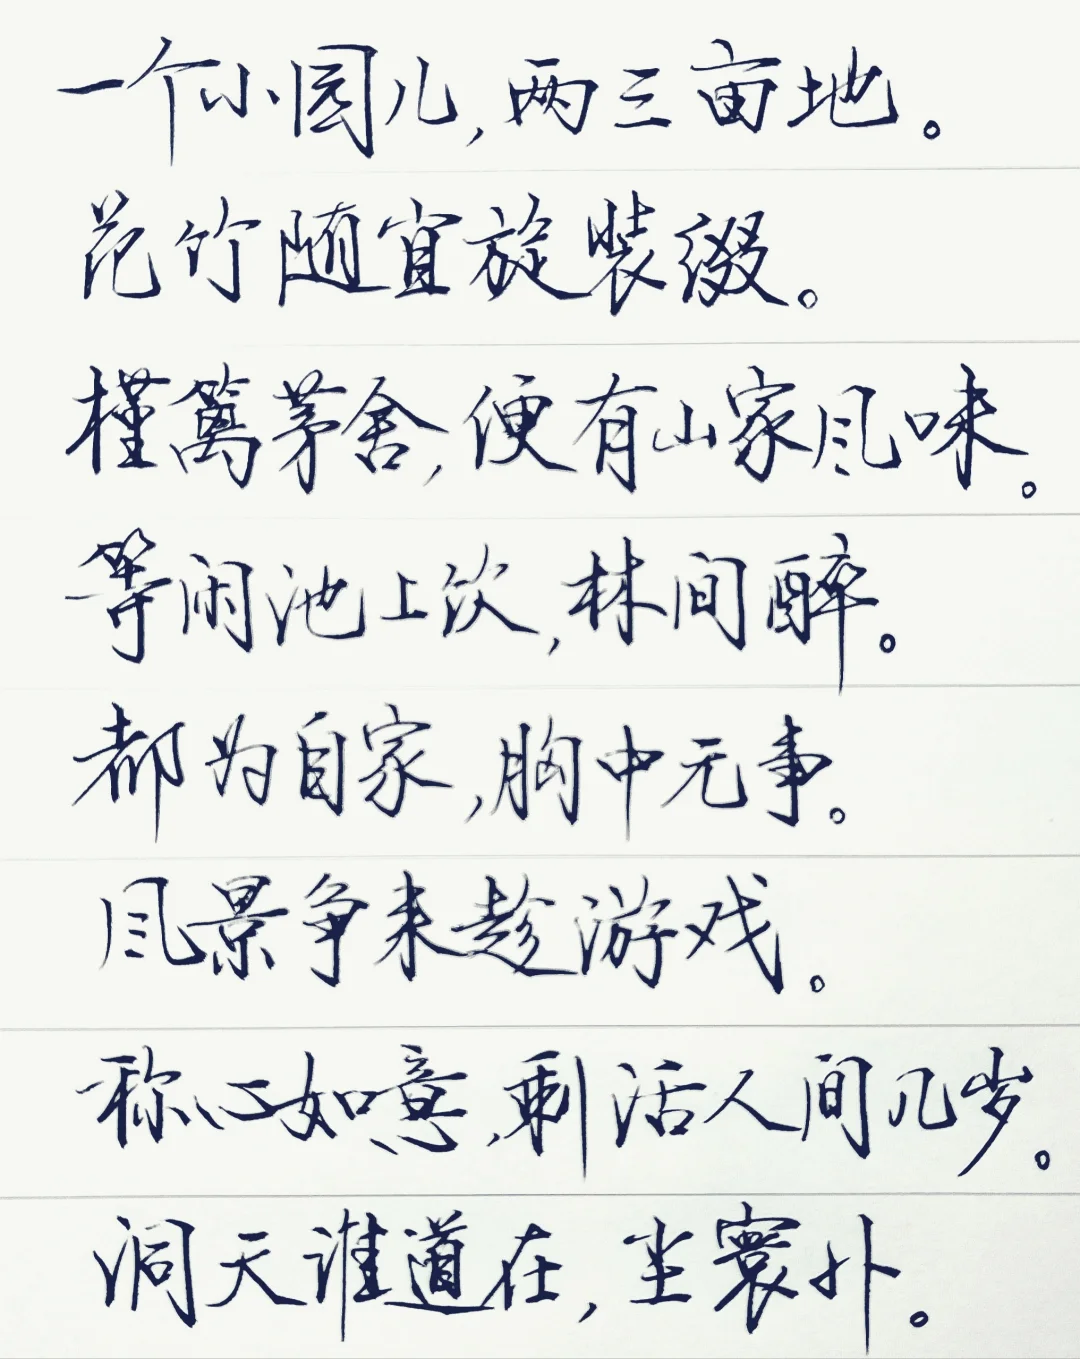 一个小园儿，两三亩地。
花竹随宜旋装缀。
槿篱茅舍，便有山家风味。
等闲池上饮，林间醉。
都为自家，胸中无事。
风景争来趁游戏。
称心如意，剩活人间几岁。
洞天谁道在，尘寰外。